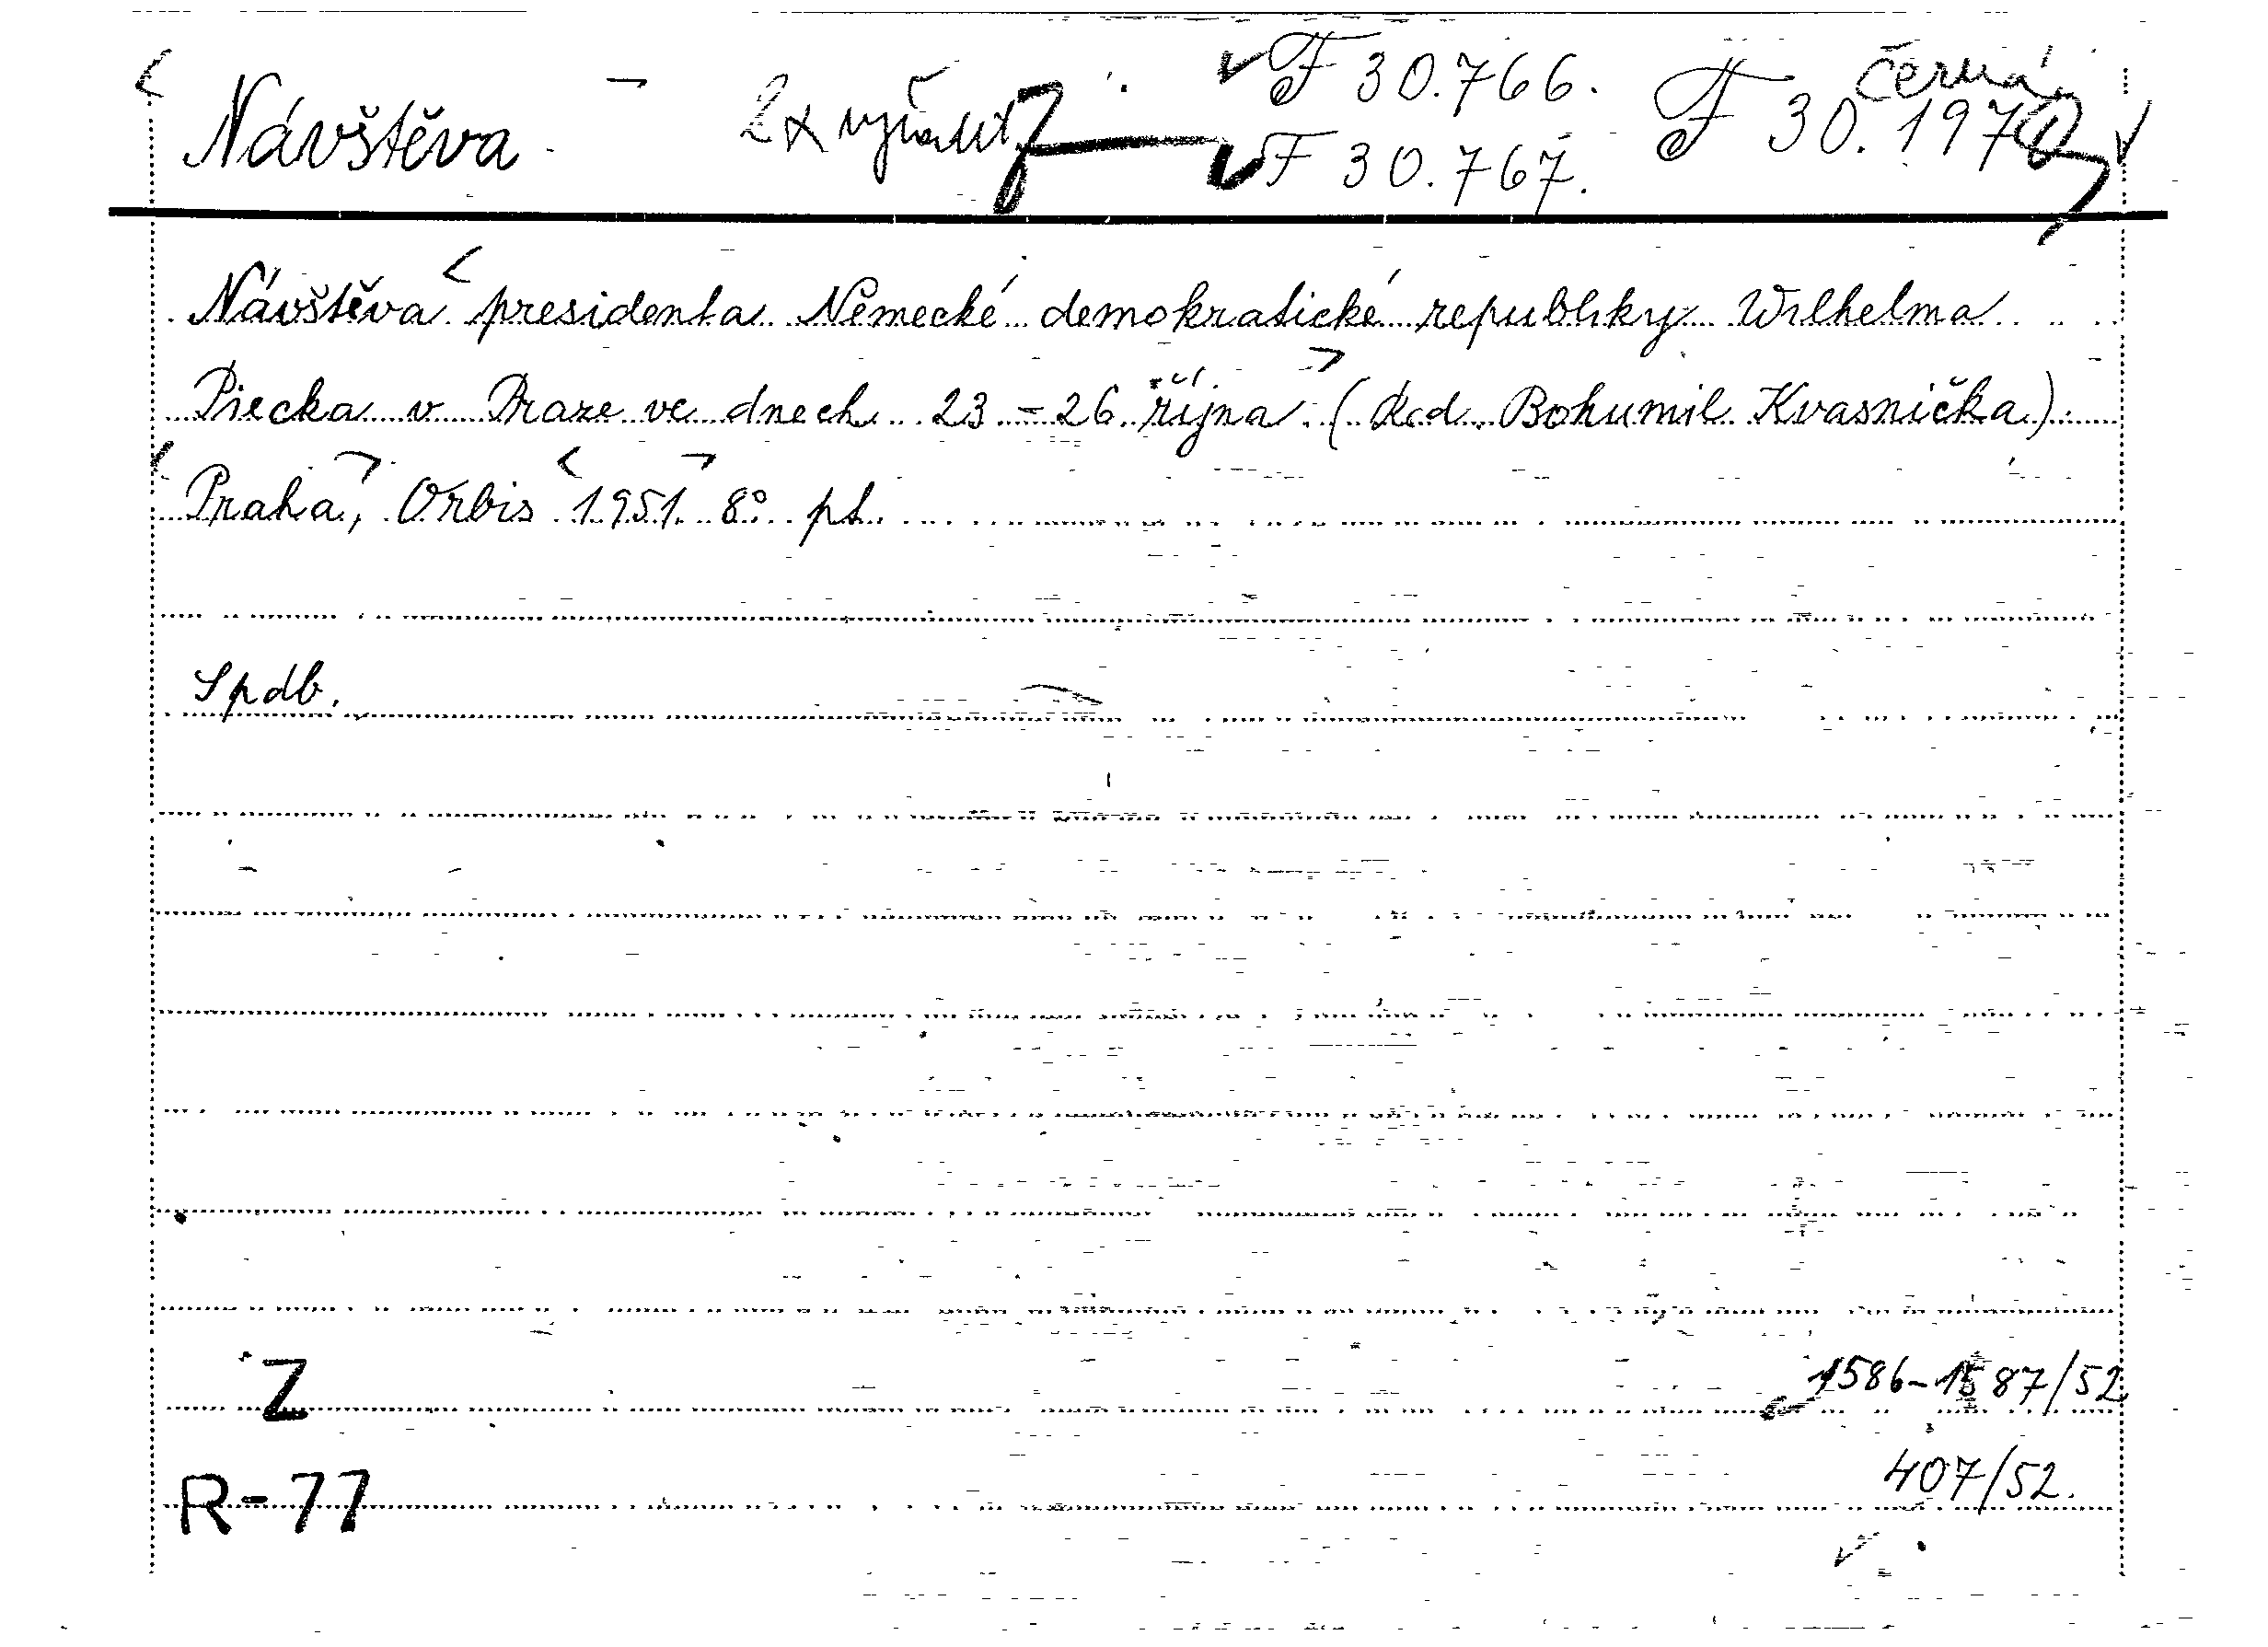 Návštěva 2x vyřadit F 30.766. F 30.197 černá
F 30.767.
Návštěva presidenta Německé demokratické republiky Wilhelma
Piecka v Praze ve dnech 23 - 26 října (Red. Bohumil Kvasnička)
Praha, Orbis 1951 8° pt.
Spdb.
Z 1586-1587/52
R-77 407/52.